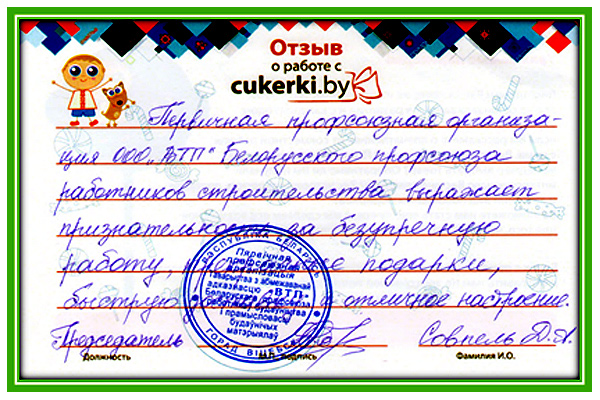 Отзыв
о работе с
cukerki.by
Первичная профсоюзная организа-
ция ООО „ВТП" Белорусского профсоюза
работников строительства выражает
признательность за безупречную
работу, подарки,
быструю и отличное настроение.
Председатель Совпель Д.А.
Должность подпись Фамилия И.О.
РЭСПУБЛІКА БЕЛАРУСЬ
Пярвічная
прафсаюзная
арганізацыя
таварыства з абмежаванай
адказнасцю «ВТП»
Беларускага прафсаюза
работнікаў будаўніцтва
і прамысловасці
будаўнічых
матэрыялаў
ГОРАД ВІЦЕБСК